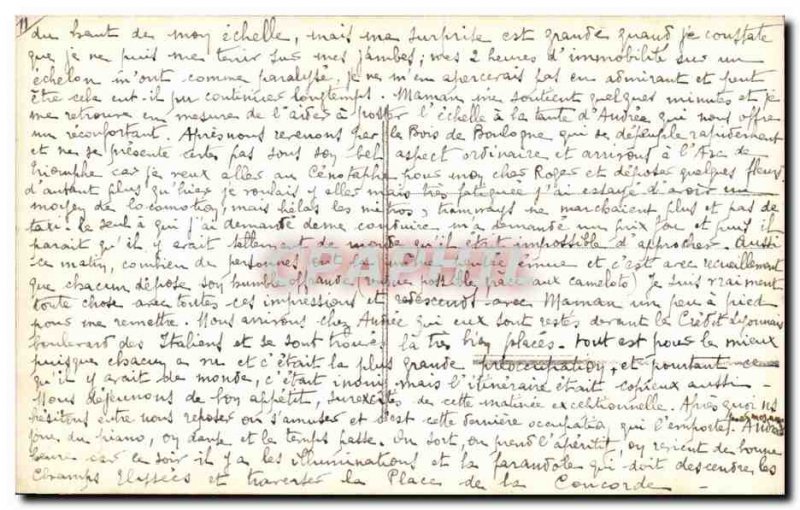 11
du haut de moy échelle, mais ma surprise est grande quand je constate
que je ne puis me tenir sur mes jambes; mes 2 heures d'immobilité sur un
échelon m'ont comme paralysé, je ne m'en apercevais pas en admirant et peut
être cela eut-il pu continuer longtemps. Maman me soutient quelques minutes et je
me retrouve en mesure de l'aider à porter l'échelle à la tante d'Andrée qui nous offre
un réconfortant. Après nous revenons par le Bois de Boulogne qui se dépeuple rapidement
et ne se présente certes pas sous soy bel aspect ordinaire et arrivons à l'Arc de
Triomphe car je veux aller au Cénotaphe pour moy cher Roger et déposer quelques fleurs
d'autant plus qu'hier je voulais y aller mais très fatiguée j'ai essayé d'avoir un
moyey de locomotioy; mais hélas les métros, tramways ne marchaient plus et pas de
taxi. Le seul à qui j'ai demandé de me conduire m'a demandé un prix fou et puis il
parait qu'il y avait tellement de monde qu'il était impossible d'approcher. Aussi
ce matin, combien de personnes ont la même émue et c'est avec recueillement
que chacun dépose soy humble offrande rendue possible grâce aux camelots) Je suis vraiment
toute chose avec toutes ces impressions et redescends avec Maman un peu à pied
pour me remettre. Nous arrivons chez Andrée qui eux sont restés devant le Crédit Lyonnais
boulevard des Italiens et se sont trouvés là très biey placés. tout est pour le mieux
puisque chacun a vu et c'était la plus grande préoccupation, et pourtant ce
qu'il y avait de monde, c'était inouï, mais l'itinéraire était copieux aussi -
Nous déjeunons de boy appétit, surexcités de cette matinée exceptionnelle. Après quoi ns
hésitons entre nous reposer ou s'amuser et c'est cette dernière occupation qui l'emporte. Andrée
joue du piano, oy danse et le temps passe. On sort, on prend l'apéritif, oy revient de bonne
heure car ce soir il y a les illuminations et la farandole qui doit descendre les
Champs Elysées et traverser la Place de la Concorde -
CPAPHIL